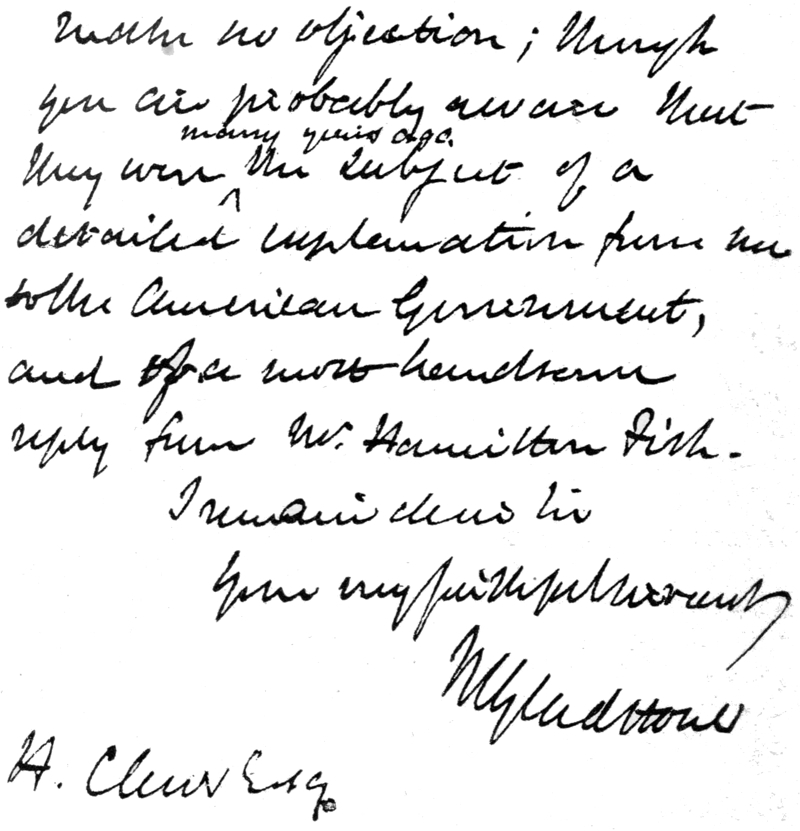 make no objection; though
you are probably aware that
many years ago
they were ^ the subject of a
detailed explanation from me
to the American Government,
and of a most handsome
reply from Mr. Hamilton Fish.
I remain dear Sir
Your very faithful servant
WEGladstone
H. Clews Esq.